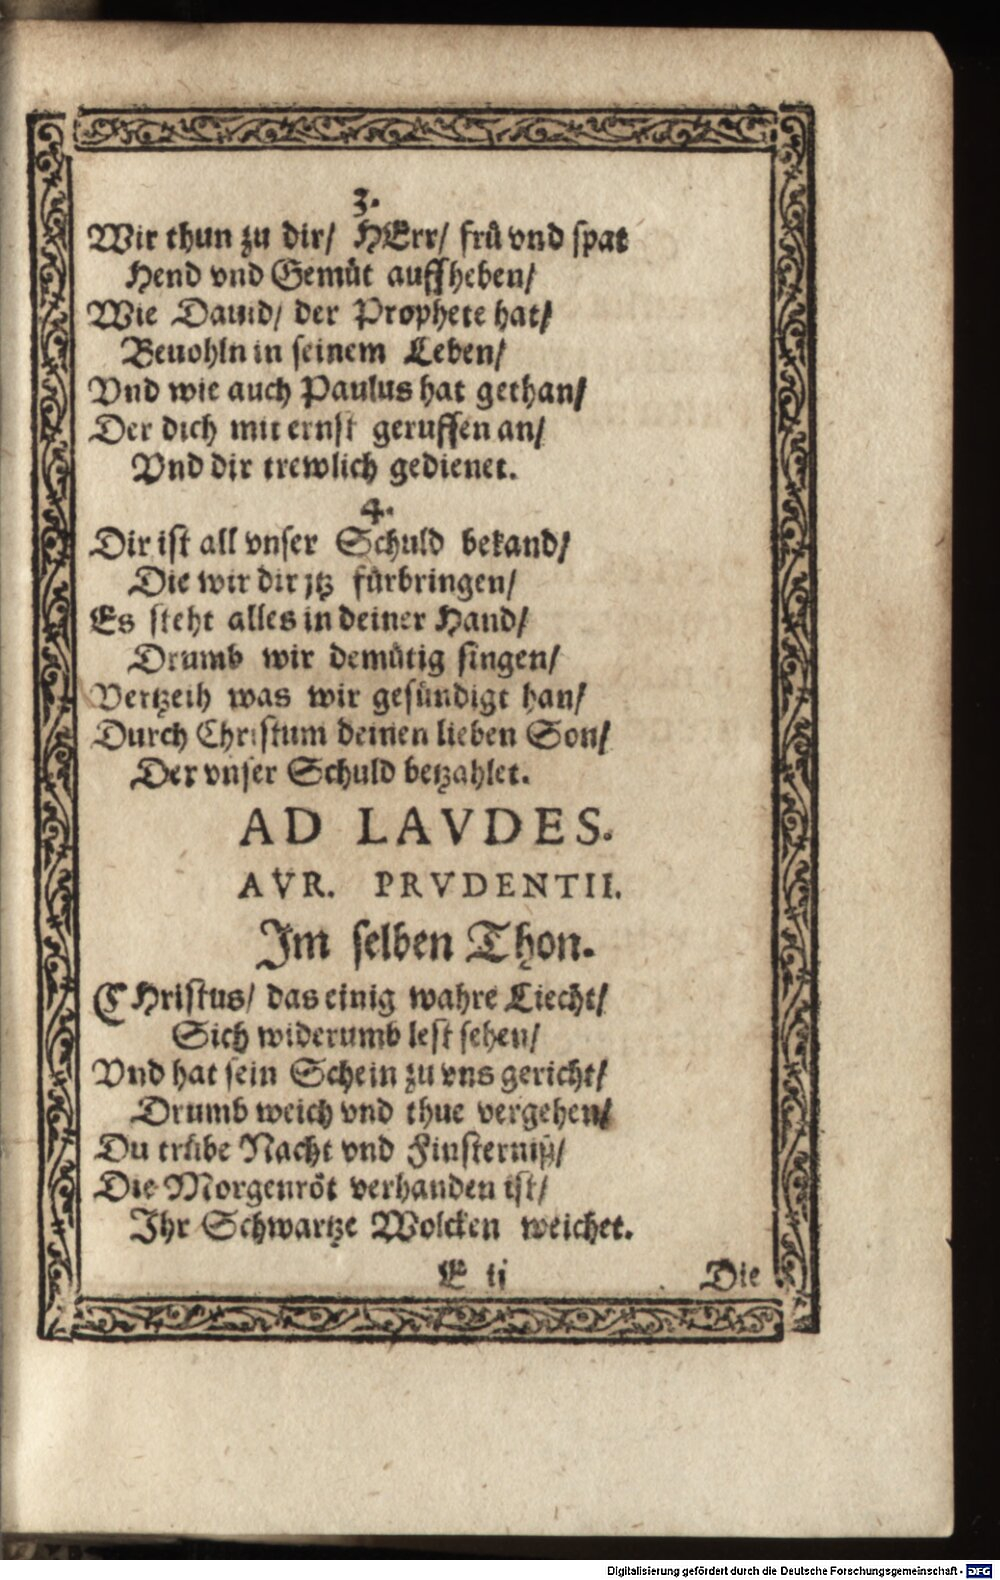 3.
Wir thun zu dir/ HErr/ fruͤ vnd spat
Hend vnd Gemuͤt auffheben/
Wie Dauid/ der Prophete hat/
Beuohln in seinem Leben/
Vnd wie auch Paulus hat gethan/
Der dich mit ernst geruffen an/
Vnd dir trewlich gedienet.
4.
Dir ist all vnser Schuld bekand/
Die wir dir jtz fuͤrbringen/
Es steht alles in deiner Hand/
Drumb wir demuͤtig singen/
Vertzeih was wir gesuͤndigt han/
Durch Christum deinen lieben Son/
Der vnser Schuld betzahlet.
AD LAVDES.
AVR. PRVDENTII.
Im selben Thon.
CHristus/ das einig wahre Liecht/
Sich widerumb lest sehen/
Vnd hat sein Schein zu vns gericht/
Drumb weich vnd thue vergehen/
Du truͤbe Nacht vnd Finsterniß/
Die Morgenroͤt verhanden ist/
Ihr Schwartze Wolcken weichet.
E ij Die
Digitalisierung gefördert durch die Deutsche Forschungsgemeinschaft - DFG